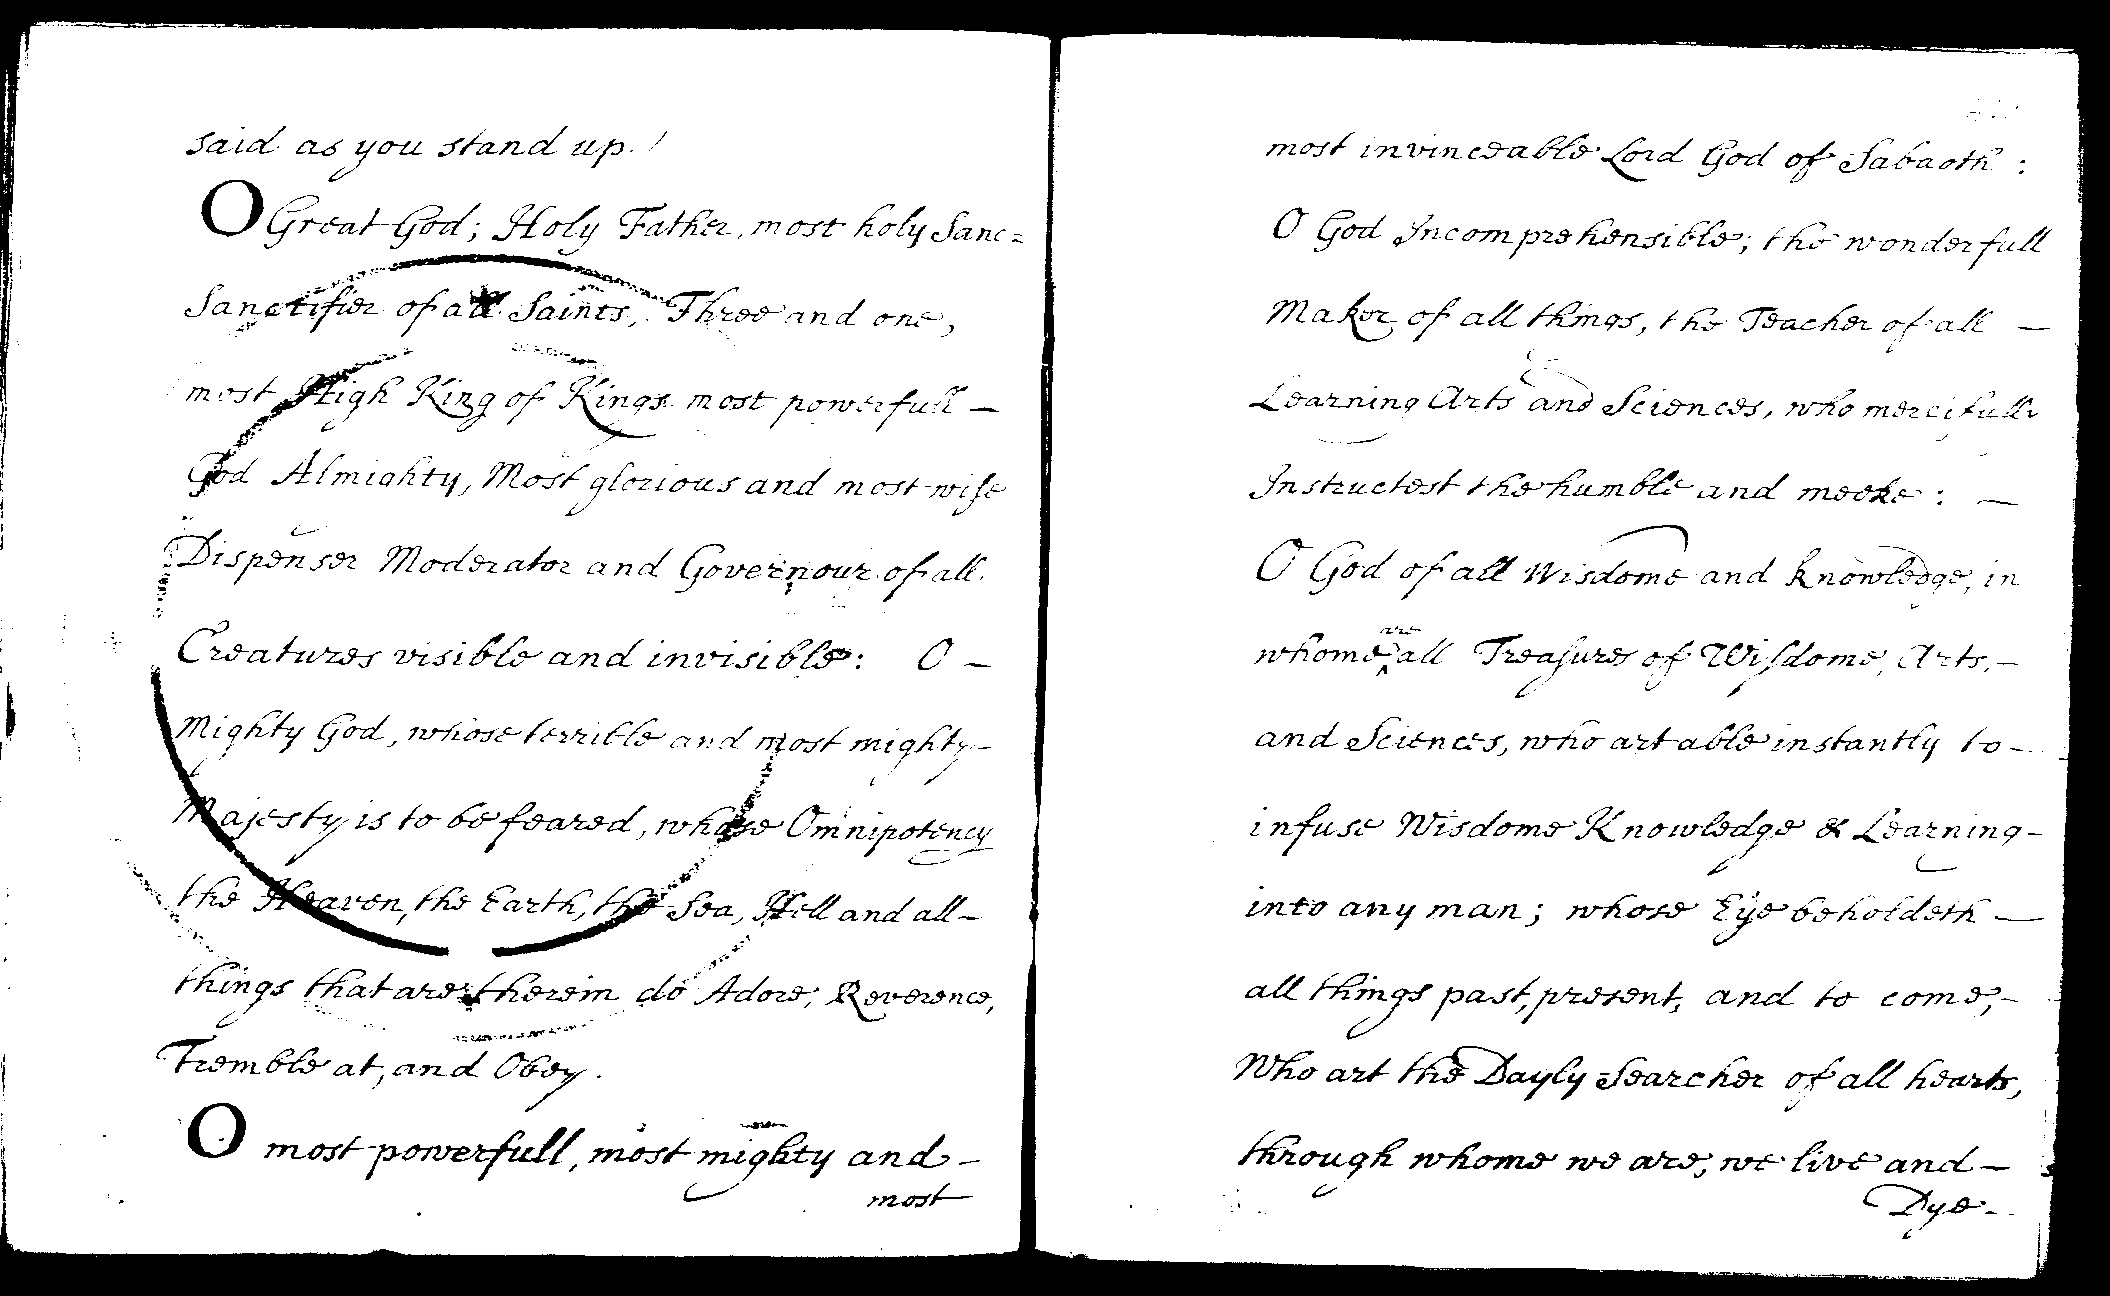 said as you stand up.
O Great God; Holy Father, most holy Sanc=
Sanctifier of all Saints, Three and one,
most High King of Kings most powerfull —
God Almighty, Most glorious and most wise
Dispenser Moderator and Governour of all
Creatures visible and invisible: O —
Mighty God, whose terrible and most mighty —
Majesty is to be feared, whose Omnipotency
the Heaven, the Earth, the Sea, Hell and all —
things that are therein do Adore, Reverence,
Tremble at, and Obey.
O most powerfull, most mighty and —
most
most invinceable Lord God of Sabaoth :
O God Incomprehensible; the wonderfull
Maker of all things, the Teacher of all —
Learning Arts and Sciences, who mercifully
Instructest the humble and meeke : —
O God of all Wisdome and knowledge, in
whome are all Treasures of Wisdome, Arts, —
and Sciences, who art able instantly to —
infuse Wisdome Knowledge & Learning —
into any man; whose Eye beholdeth —
all things past, present, and to come, —
Who art the Dayly Searcher of all hearts,
through whome we are, we live and —
Dye —